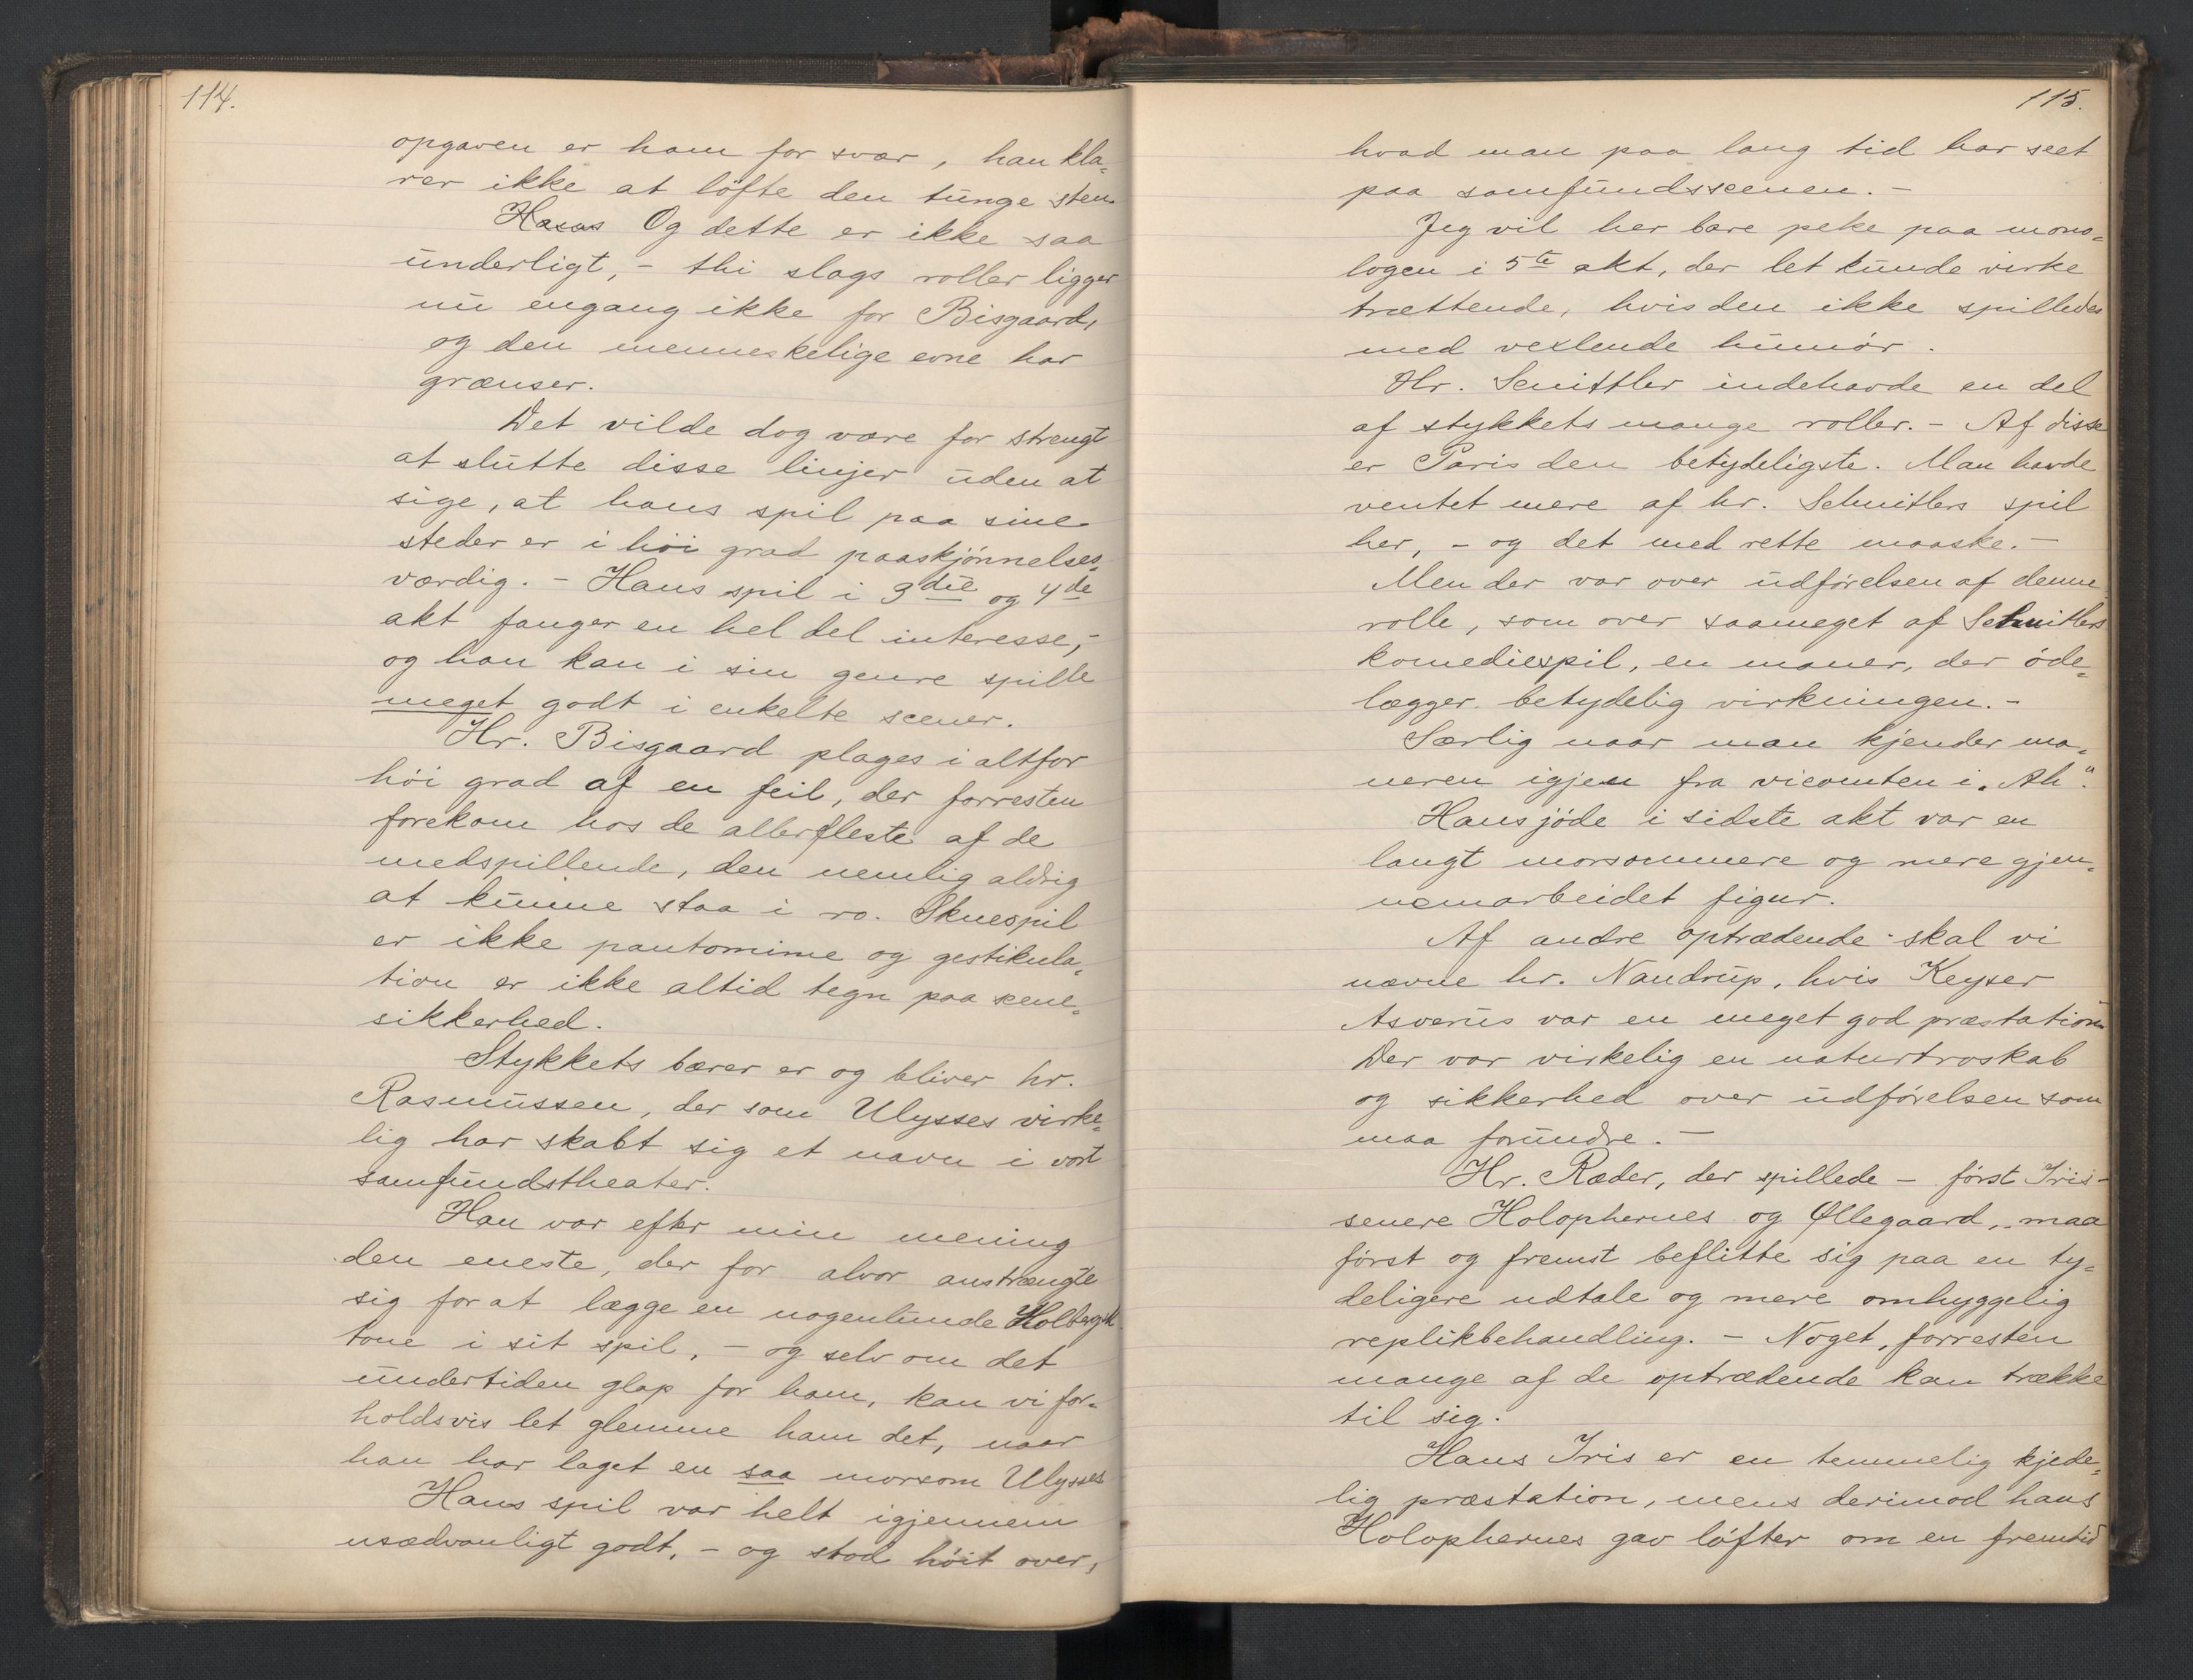 114.
opgaven er ham for svær, han kla„
rer ikke at löfte den tunge sten.
Og dette er ikke saa
underligt, - thi slags roller ligger
nu engang ikke for Bisgaard,
og den menneskelige evne har
grænser.
Det vilde dog være for strengt
at slutte disse linjer uden at
sige, at hans spil paa sine
steder er i höi grad paaskjönnelses„
værdig. - Hans spil i 3die og 4de
akt fanger en hel del interesse, -
og han kan i sin genre spille
meget godt i enkelte scener.
Hr. Bisgaard plages i altfor
höi grad af en feil, der forresten
forekom hos de allerfleste af de
medspillende, den nemlig aldrig
at kunne staa i ro. Skuespil
er ikke pantomime og gestikula„
tion er ikke altid tegn paa scene„
sikkerhed.
Stykkets bærer er og bliver hr.
Rasmussen, der som Ulysses virke„
lig har skabt sig et navn i vort
samfundstheater.
Han var efter min mening
den eneste, der for alvor anstrængte
sig for at lægge en nogenlunde Holbergsk
tone i sit spil, - og selv om det
undertiden glap for ham, kan vi for„
holdsvis let glemme ham det, naar
han har laget en saa morsom Ulysses
Hans spil var helt igjennem
usædvanligt godt, - og stod höit over,
115.
hvad man paa lang tid har seet
paa samfundsscenen. -
Jeg vil her bare peke paa mono„
logen i 5te akt, der let kunde virke
trættende, hvis den ikke spilledes
med vexlende humör.
Hr. Schnittler indehavde en del
af stykkets mange roller. - Af disse
er Paris den betydeligste. Man havde
ventet mere af hr. Schnitlers spil
her, - og det med rette maaske. -
Men der var over udförelsen af denne
rolle, som over saameget af Schnitlers
komediespil, en maner, der öde„
lægger betydelig virkningen. -
Særlig naar man kjender ma„
neren igjen fra vicomten i „Ah“.
Hans jöde i sidste akt var en
langt morsommere og mere gjen„
nemarbeidet figur.
Af andre optrædende skal vi
nævne hr. Nandrup, hvis Keyser
Asverus var en meget god præstation
Der var virkelig en naturtroskab
og sikkerhed over udförelsen som
maa forundre. -
Hr. Ræder, der spillede - först Iris -
senere Holophernes og Øllegaard, maa
först og fremst beflitte sig paa en ty„
deligere udtale og mere omhyggelig
replikbehandling. - Noget, forresten
mange af de optrædende kan trække
til sig.
Hans Iris er en temmelig kjede„
lig præstation, mens derimod hans
Holophernes gav löfter om en fremtid